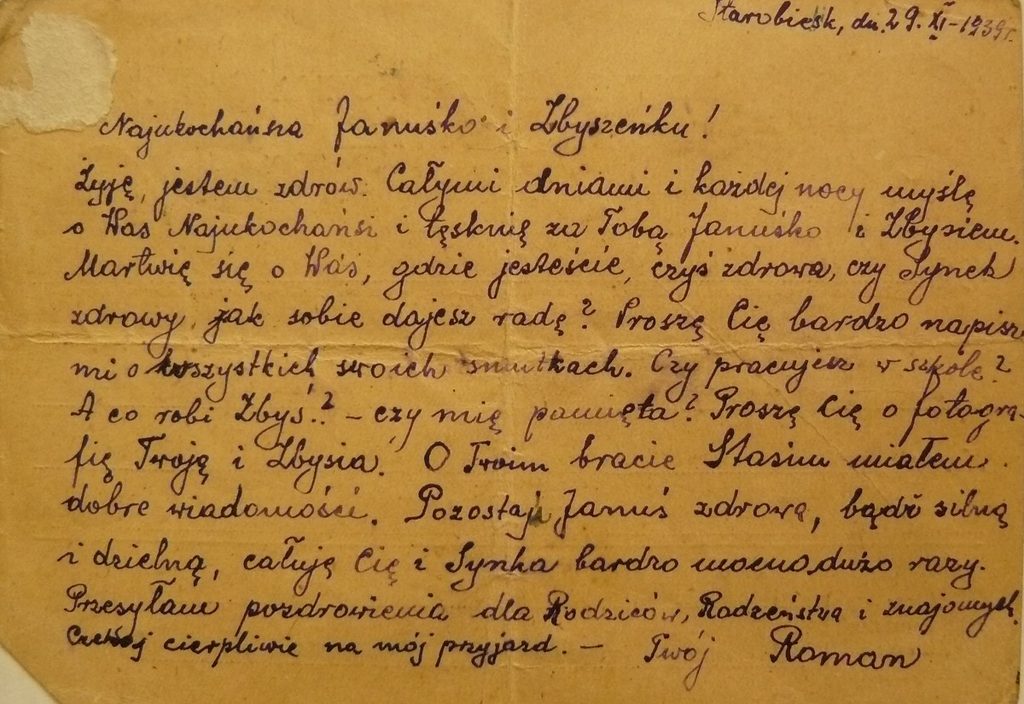 Starobielsk, dn. 29. XI-1939r.
Najukochańsza Januśko i Zbyszeńku!
Żyję, jestem zdrów. Całymi dniami i każdej nocy myślę
o Was Najukochańsi i tęsknię za Tobą Januśko i Zbysiem.
Martwię się o Was, gdzie jesteście, czyś zdrowa, czy Synek
zdrowy, jak sobie dajesz radę? Proszę Cię bardzo napisz
mi o wszystkich swoich smutkach. Czy pracujesz w szkole?
A co robi Zbyś..? - czy mię pamięta? Proszę Cię o fotogra-
fię Twoją i Zbysia. O Twoim bracie Stasiu miałem
dobre wiadomości. Pozostaj Januś zdrową, bądź silną
i dzielną, całuję Cię i Synka bardzo mocno, dużo razy.
Przesyłam pozdrowienia dla Rodziców, Rodzeństwa i znajomych.
Czekaj cierpliwie na mój przyjazd. — Twój Roman